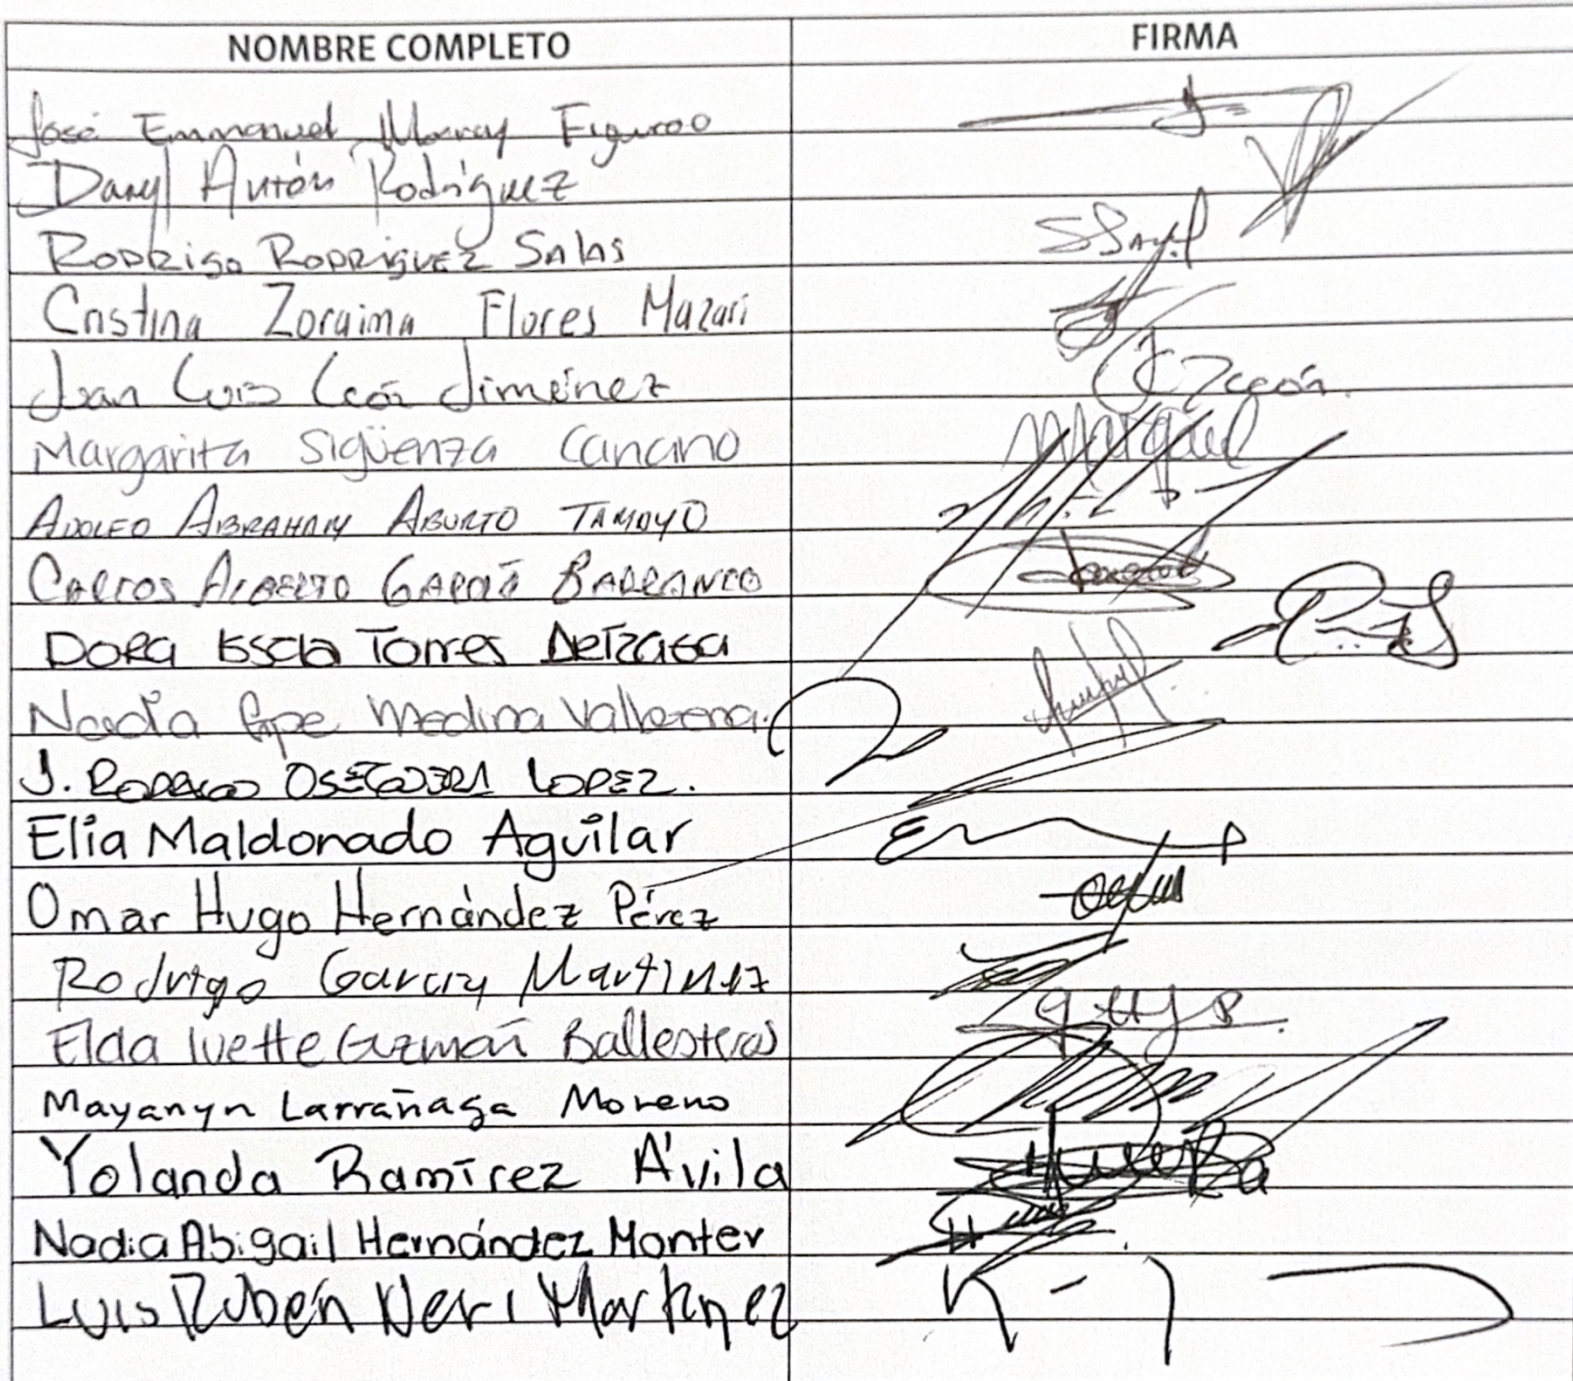 NOMBRE COMPLETO FIRMA
José Emmanuel Figueroo
Daryl Antón Rodríguez
RODRIGO RODRIGUEZ SALAS
Cristina Zoraima Flores Mazari
Juan Luis León Jiménez
Margarita Sigüenza Cancino
ADOLFO ABRAHAM ABURTO TAMAYO
CARLOS ALBERTO GARCÍA BARRANCO
DORA Torres
Nadia Gpe Medina
J. RODRIGO LOPEZ.
Elia Maldonado Aguilar
Omar Hugo Hernández Pérez
Rodrigo García Martínez
Elda Ivette Guzmán Ballesteros
Mayanyn Larrañaga Moreno
Yolanda Ramírez Ávila
Nadia Abigail Hernández Monter
Luis Rubén Neri Martínez